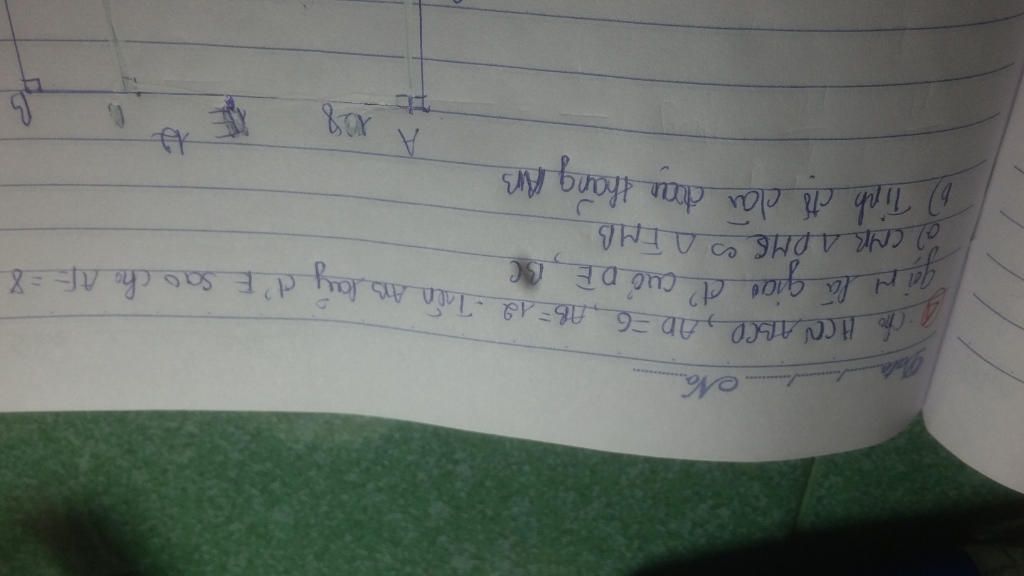 Date ....../....../...... No ..........
④ Cho HCN ABCD, AD = 6, AB = 12. Trên AB lấy đ' E sao cho AE = 8
gọi M là giao đ' của DE, BC
a) CMR Δ DMC ∽ Δ EMB
b) Tính độ dài đoạn thẳng
A 8 E B
12